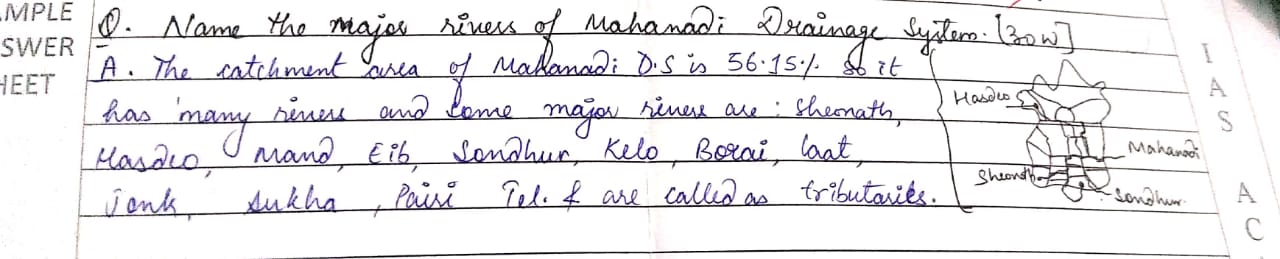 AMPLE
SWER
HEET
Q. Name the major rivers of Mahanadi Drainage System. [30W]
A. The catchment area of Mahanadi D.S is 56.15%. so it
has many rivers and some major rivers are : Sheonath,
Hasdeo, Mand, Eib, Sondhur, Kelo, Borai, Laat,
Jonk, Sukha, Pairi Tel. & are called as tributaries.
Hasdeo
Mahanadi
Sheonath
Sondhur
I
A
S
A
C